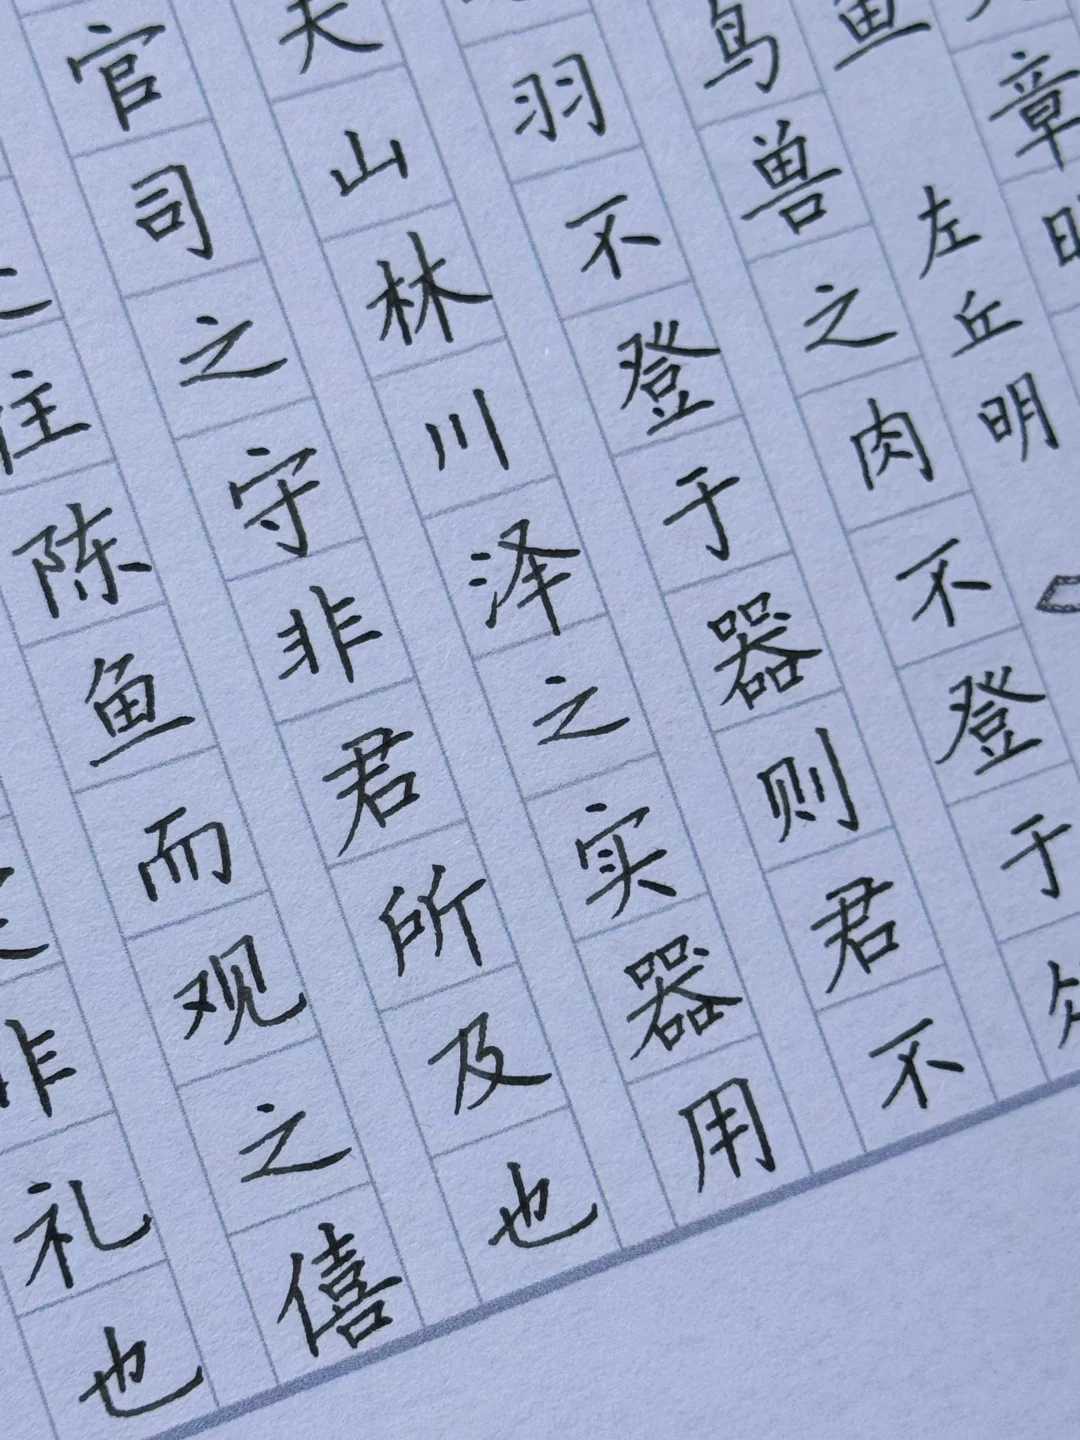 章
鱼左丘明
鸟兽之肉不登于
羽不登于器则君不
夫山林川泽之实器用
官司之守非君所及也
陈鱼而观之僖
非礼也